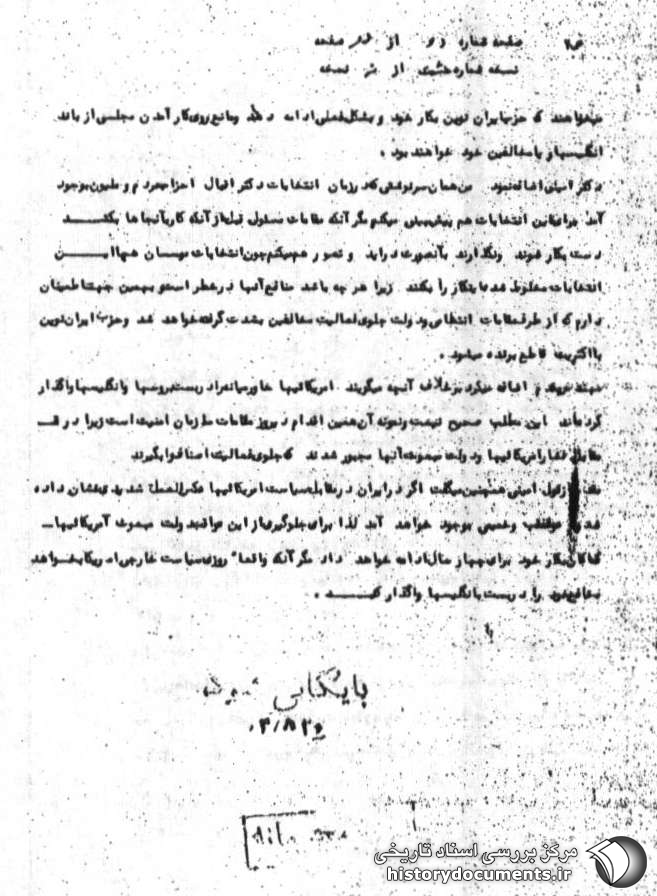 صفحه شماره دو از دو صفحه
نسخه شماره هشت از شش نسخه
میخواهند که حزب ایران نوین بکار خود و بشکل فعلی ادامه دهد و مانع روی کار آمدن مجلسی از باند
انگلیسها و یا مخالفین خود خواهند بود .
دکتر امینی اضافه نمود من همان سرنوشتی که در زمان انتخابات دکتر اقبال احزاب مردم و ملیون بوجود
آمد برای این انتخابات هم پیش بینی میکنم مگر آنکه مقامات مسئول قبل از آنکه کار بآنجاها بکشد
دست بکار شوند و نگذارند بآنصورت درآید و تصور هم میکنم چون انتخابات دوستان هم با این
انتخابات مخلوط شده اینکار را بکنند زیرا هر چه باشد منافع آنها در خطر است و بهمین جهت اطمینان
دارم که از طرف مقامات انتظامی و دولت جلوی فعالیت مخالفین بشدت گرفته خواهد شد و حزب ایران نوین
با اکثریت قاطع برنده میشود .
اضافه میکرد برخلاف آنچه میگویند امریکائیها خاورمیانه را دربست بروسها و انگلیسها واگذار
کرده اند این مطلب صحیح نیست و نمونه آن همین اقدام دیروز مقامات سازمان امنیت است زیرا در
مقابل فشار امریکائیها و دولت مبعوث آنها مجبور شدند که جلوی فعالیت اصناف را بگیرند
امینی همچنین میگفت اگر در ایران در مقابل سیاست امریکائیها عکس العمل شدیدی نشان داده
شد عواقب وخیمی بوجود خواهد آمد لذا برای جلوگیری از این عواقب دولت مبعوث آمریکائیها
کماکان بکار خود برای چهار سال ادامه خواهد داد مگر آنکه واقعا" روزی سیاست خارجی امریکا بخواهد
منافع خود را دربست بانگلیسها واگذار کند .
بایگانی شود
مرکز بررسی اسناد تاریخی
historydocuments.ir